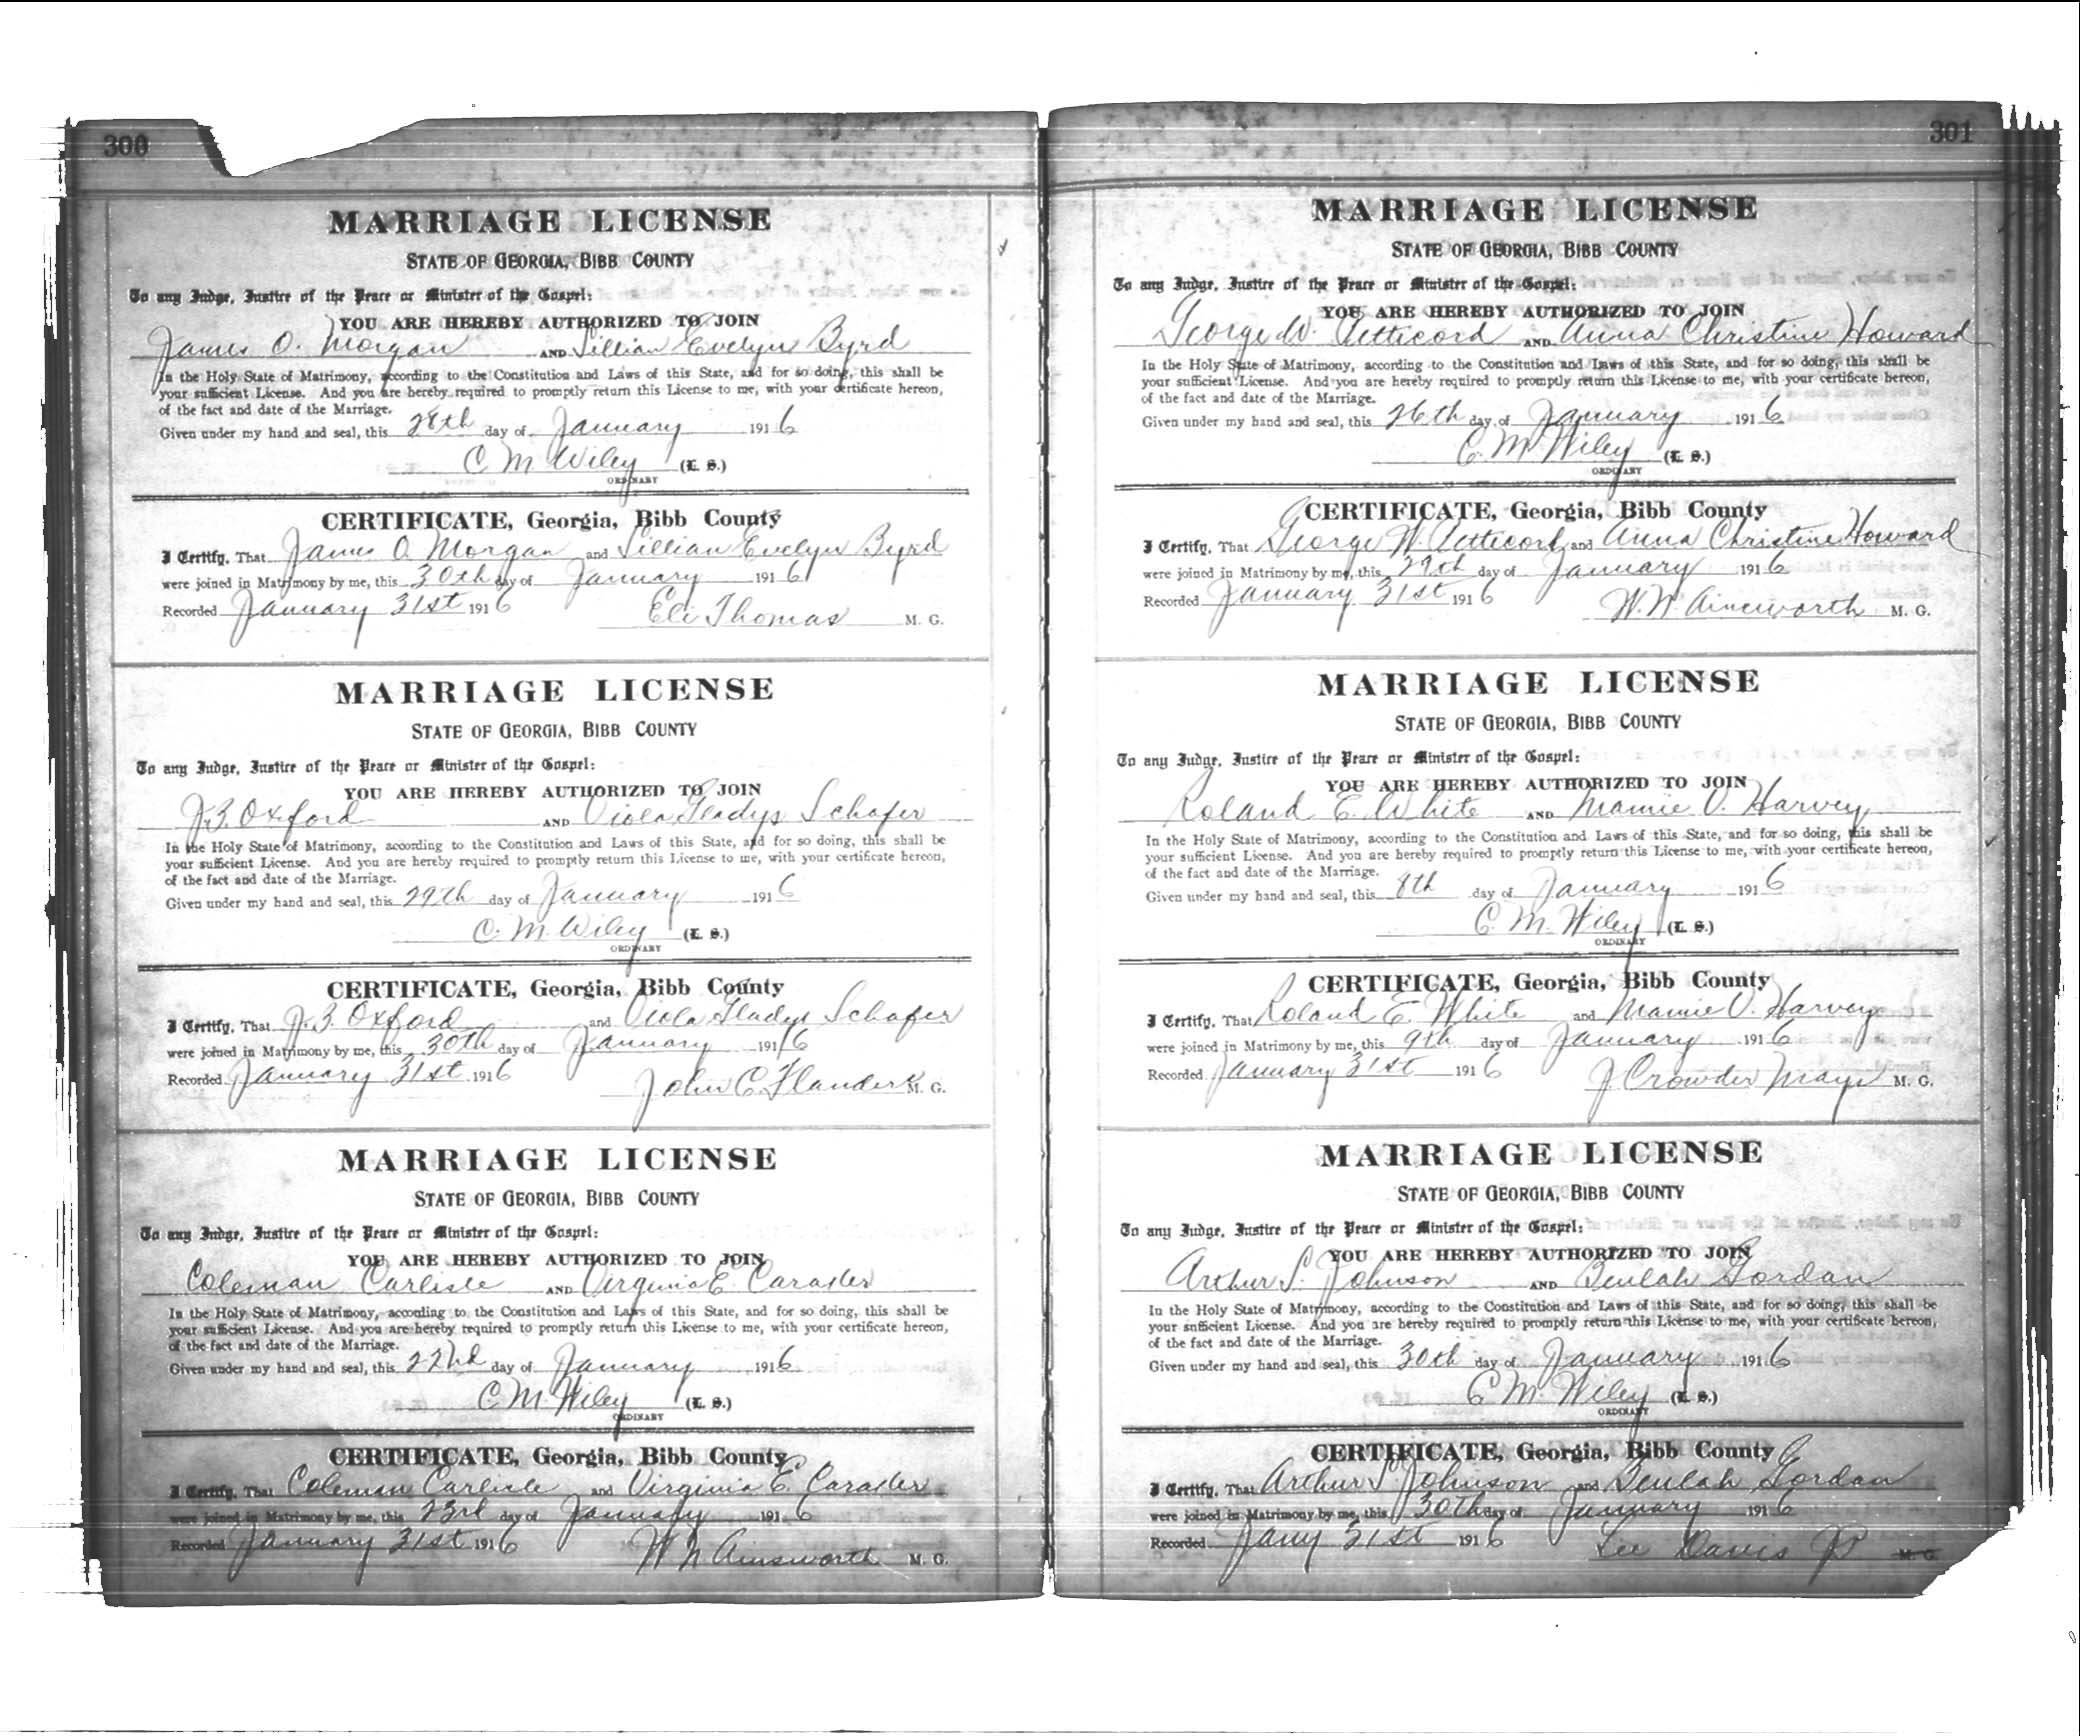 300
MARRIAGE LICENSE
STATE OF GEORGIA, BIBB COUNTY
To any Judge, Justice of the Peace or Minister of the Gospel:
YOU ARE HEREBY AUTHORIZED TO JOIN
James O. Morgan AND Lillian Evelyn Byrd
In the Holy State of Matrimony, according to the Constitution and Laws of this State, and for so doing, this shall be
your sufficient License. And you are hereby required to promptly return this License to me, with your certificate hereon,
of the fact and date of the Marriage.
Given under my hand and seal, this 28th day of January 1916
C. M. Wiley (L. S.)
ORDINARY
CERTIFICATE, Georgia, Bibb County
I Certify, That James O. Morgan and Lillian Evelyn Byrd
were joined in Matrimony by me, this 30th day of January 1916
Recorded January 31st 1916 Eli Thomas M. G.
MARRIAGE LICENSE
STATE OF GEORGIA, BIBB COUNTY
To any Judge, Justice of the Peace or Minister of the Gospel:
YOU ARE HEREBY AUTHORIZED TO JOIN
J. Z. Oxford AND Viola Gladys Schafer
In the Holy State of Matrimony, according to the Constitution and Laws of this State, and for so doing, this shall be
your sufficient License. And you are hereby required to promptly return this License to me, with your certificate hereon,
of the fact and date of the Marriage.
Given under my hand and seal, this 29th day of January 1916
C. M. Wiley (L. S.)
ORDINARY
CERTIFICATE, Georgia, Bibb County
I Certify, That J. Z. Oxford and Viola Gladys Schafer
were joined in Matrimony by me, this 30th day of January 1916
Recorded January 31st 1916 John C. Flanders M. G.
MARRIAGE LICENSE
STATE OF GEORGIA, BIBB COUNTY
To any Judge, Justice of the Peace or Minister of the Gospel:
YOU ARE HEREBY AUTHORIZED TO JOIN
Coleman Carlisle AND Virginia E.
In the Holy State of Matrimony, according to the Constitution and Laws of this State, and for so doing, this shall be
your sufficient License. And you are hereby required to promptly return this License to me, with your certificate hereon,
of the fact and date of the Marriage.
Given under my hand and seal, this 22nd day of January 1916
C M Wiley (L. S.)
ORDINARY
CERTIFICATE, Georgia, Bibb County
I Certify, That Coleman Carlisle and Virginia E.
were joined in Matrimony by me, this 23rd day of January 1916
Recorded January 31st 1916 W N Ainsworth M. G.
301
MARRIAGE LICENSE
STATE OF GEORGIA, BIBB COUNTY
To any Judge, Justice of the Peace or Minister of the Gospel:
YOU ARE HEREBY AUTHORIZED TO JOIN
George W. Petticord AND Anna Christine Howard
In the Holy State of Matrimony, according to the Constitution and Laws of this State, and for so doing, this shall be
your sufficient License. And you are hereby required to promptly return this License to me, with your certificate hereon,
of the fact and date of the Marriage.
Given under my hand and seal, this 26th day of January 1916
C. M. Wiley (L. S.)
ORDINARY
CERTIFICATE, Georgia, Bibb County
I Certify, That George W. Petticord and Anna Christine Howard
were joined in Matrimony by me, this 29th day of January 1916
Recorded January 31st 1916 W. N. Ainsworth M. G.
MARRIAGE LICENSE
STATE OF GEORGIA, BIBB COUNTY
To any Judge, Justice of the Peace or Minister of the Gospel:
YOU ARE HEREBY AUTHORIZED TO JOIN
Roland E. White AND Mamie V. Harvey
In the Holy State of Matrimony, according to the Constitution and Laws of this State, and for so doing, this shall be
your sufficient License. And you are hereby required to promptly return this License to me, with your certificate hereon,
of the fact and date of the Marriage.
Given under my hand and seal, this 8th day of January 1916
C. M. Wiley (L. S.)
ORDINARY
CERTIFICATE, Georgia, Bibb County
I Certify, That Roland E. White and Mamie V. Harvey
were joined in Matrimony by me, this 9th day of January 1916
Recorded January 31st 1916 J Crowder Mays M. G.
MARRIAGE LICENSE
STATE OF GEORGIA, BIBB COUNTY
To any Judge, Justice of the Peace or Minister of the Gospel:
YOU ARE HEREBY AUTHORIZED TO JOIN
Arthur S. Johnson AND Beulah Gordan
In the Holy State of Matrimony, according to the Constitution and Laws of this State, and for so doing, this shall be
your sufficient License. And you are hereby required to promptly return this License to me, with your certificate hereon,
of the fact and date of the Marriage.
Given under my hand and seal, this 30th day of January 1916
C M. Wiley (L. S.)
ORDINARY
CERTIFICATE, Georgia, Bibb County
I Certify, That Arthur S. Johnson and Beulah Gordan
were joined in Matrimony by me, this 30th day of January 1916
Recorded Jany 31st 1916 Lee Davis JP M. G.